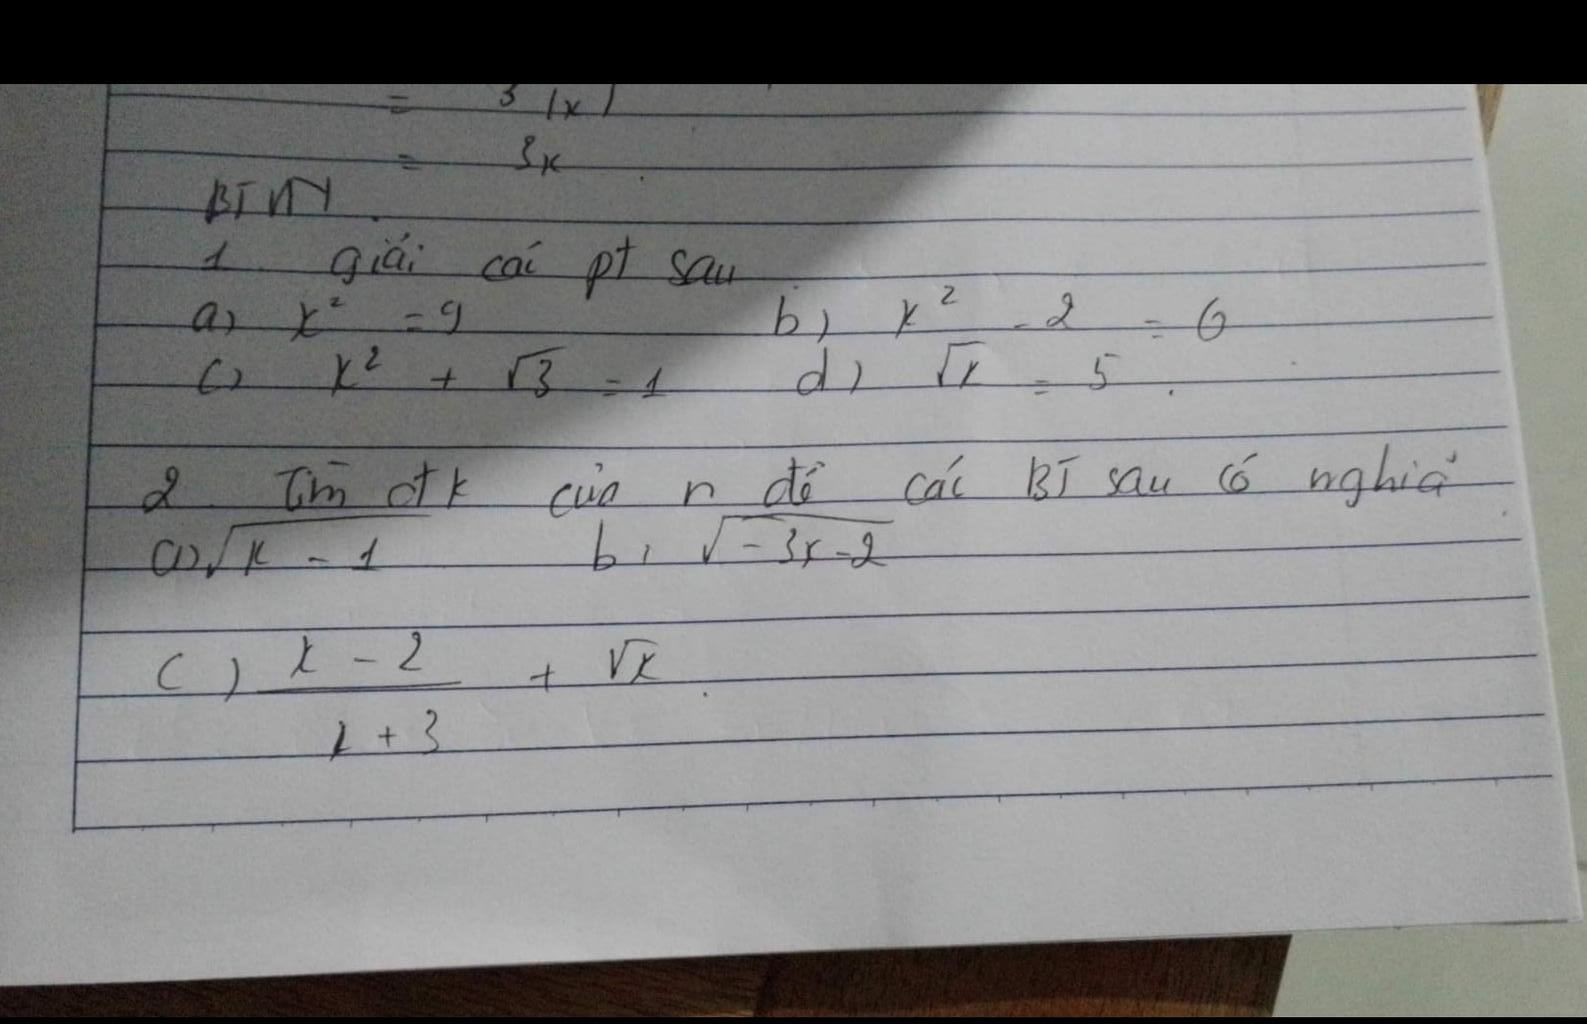 = 3 |x|
= 3x
BTVN
1 giải các pt sau
a) x² = 9 b) x² - 2 = 6
c) x² + √3 = 1 d) √x = 5.
2 Tìm đk của n để các BT sau có nghiã
a) √x - 1 b, √-3x-2
c) x - 2 + √x
x + 3